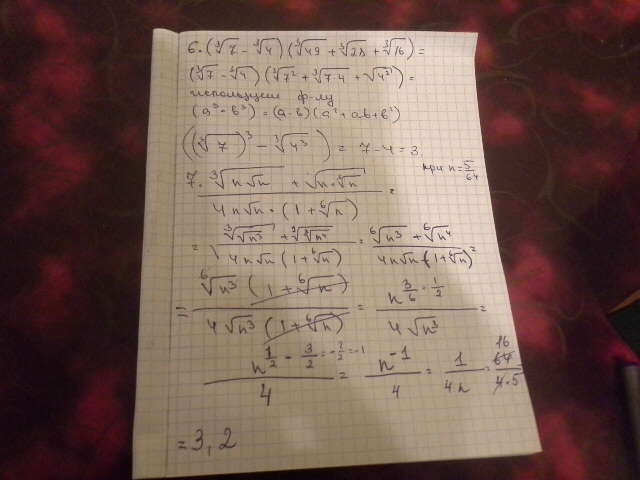 6. (∛7 - ∛4) (∛49 + ∛28 + ∛16) =
(∛7 - ∛4) (∛7² + ∛7·4 + √4²) =
используем ф-лу
(a³ - b³) = (a-b)(a² + ab + b²)
((∛7)³ - ∛4³) = 7-4 = 3
при n = 5/64
7. (∛(n√n) + √(n·∛n)) / (4n√n · (1 + ⁶√n)) =
= (∛√n³ + √∛n⁴) / (4n√n (1 + ⁶√n)) = (⁶√n³ + ⁶√n⁴) / (4n√n (1 + ⁶√n)) =
= ⁶√n³ (1 + ⁶√n) / (4√n³ (1 + ⁶√n)) = n^(3/6 = 1/2) / (4√n³) =
n^(1/2 - 3/2 = -2/2 = -1) / 4 = n⁻¹ / 4 = 1 / 4n = 16 64 / 4·5
= 3,2